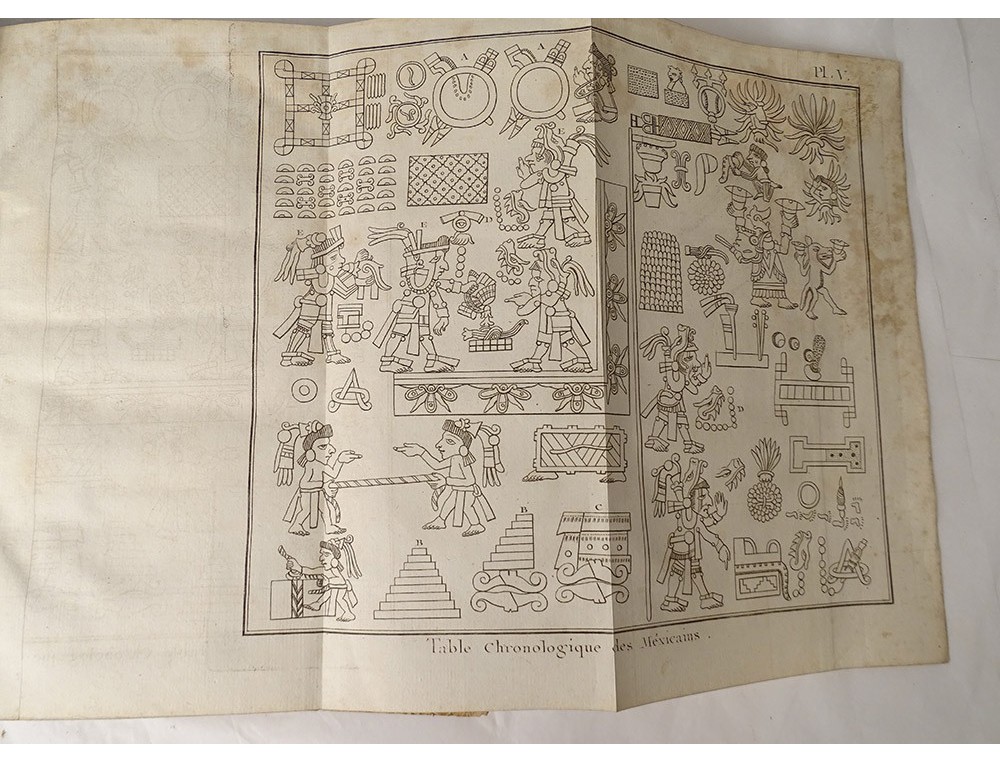 Pl. V.
A
A
E
D
E
E
D
B
B
C
Table Chronologique des Méxicains.